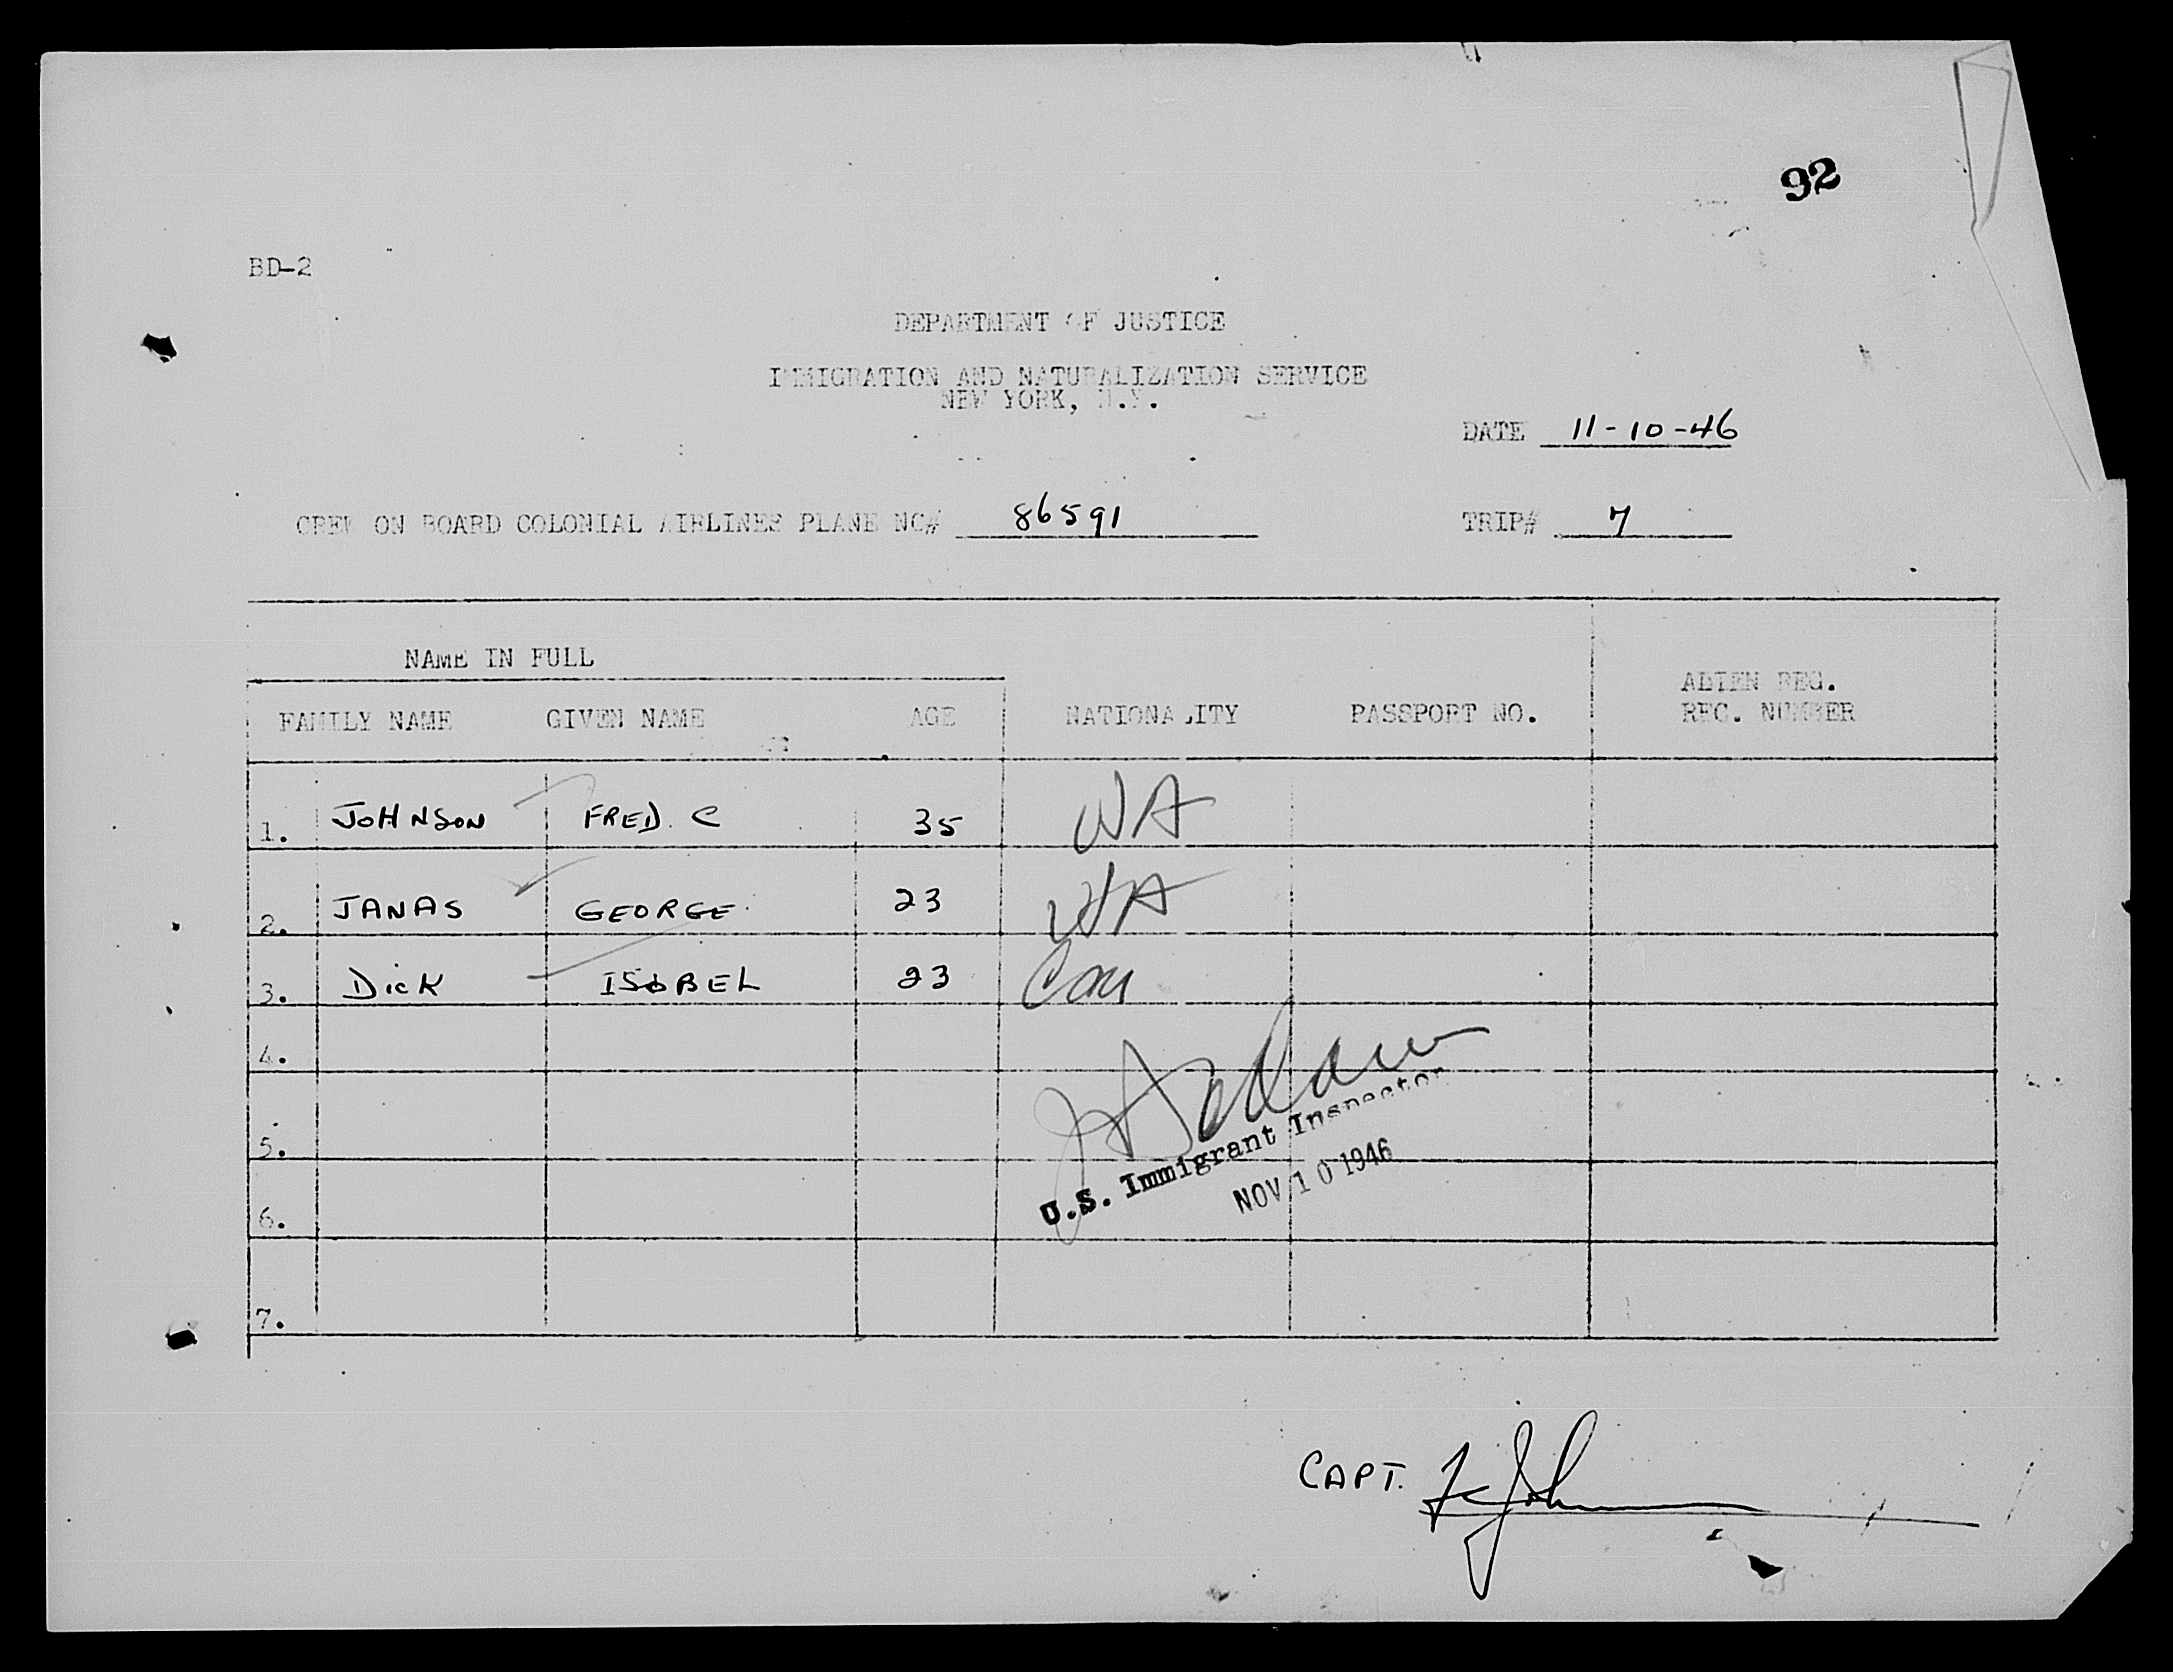 92
BD-2
DEPARTMENT OF JUSTICE
IMMIGRATION AND NATURALIZATION SERVICE
NEW YORK, N.Y.
DATE 11-10-46
CREW ON BOARD COLONIAL AIRLINES PLANE NC# 86591 TRIP# 7
NAME IN FULL
FAMILY NAME GIVEN NAME AGE NATIONALITY PASSPORT NO. ALIEN REG. REC. NUMBER
1. JOHNSON FRED. C 35
2. JANAS GEORGE 23
3. DICK ISOBEL 23
4.
5.
6.
7.
U.S. Immigrant Inspector
NOV 10 1946
CAPT. F C Johnson